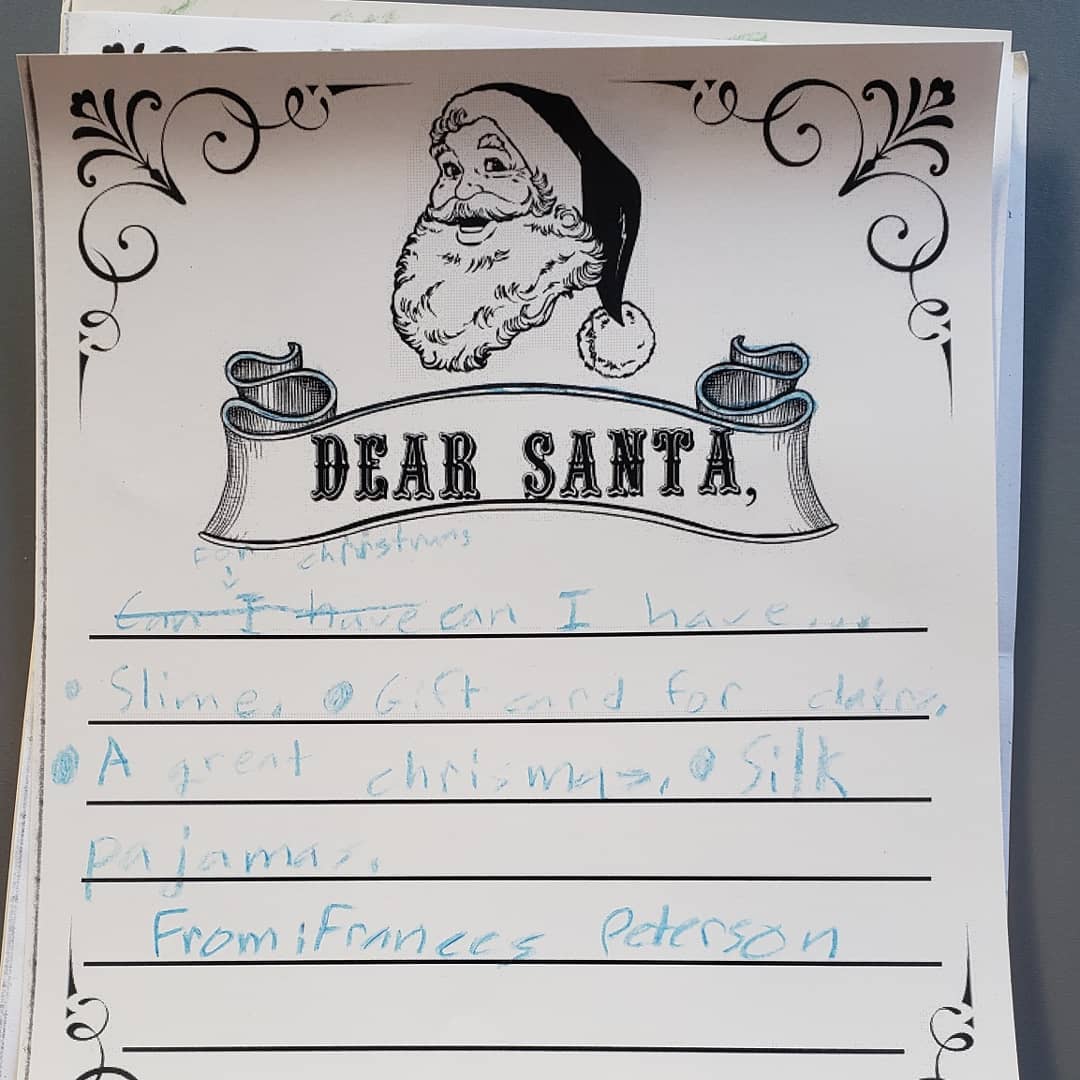 DEAR SANTA,
For christmas
Can I have can I have...
• Slime. • Gift card for claire.
• A great chrismas. • Silk
pajamas.
From: Frances Peterson